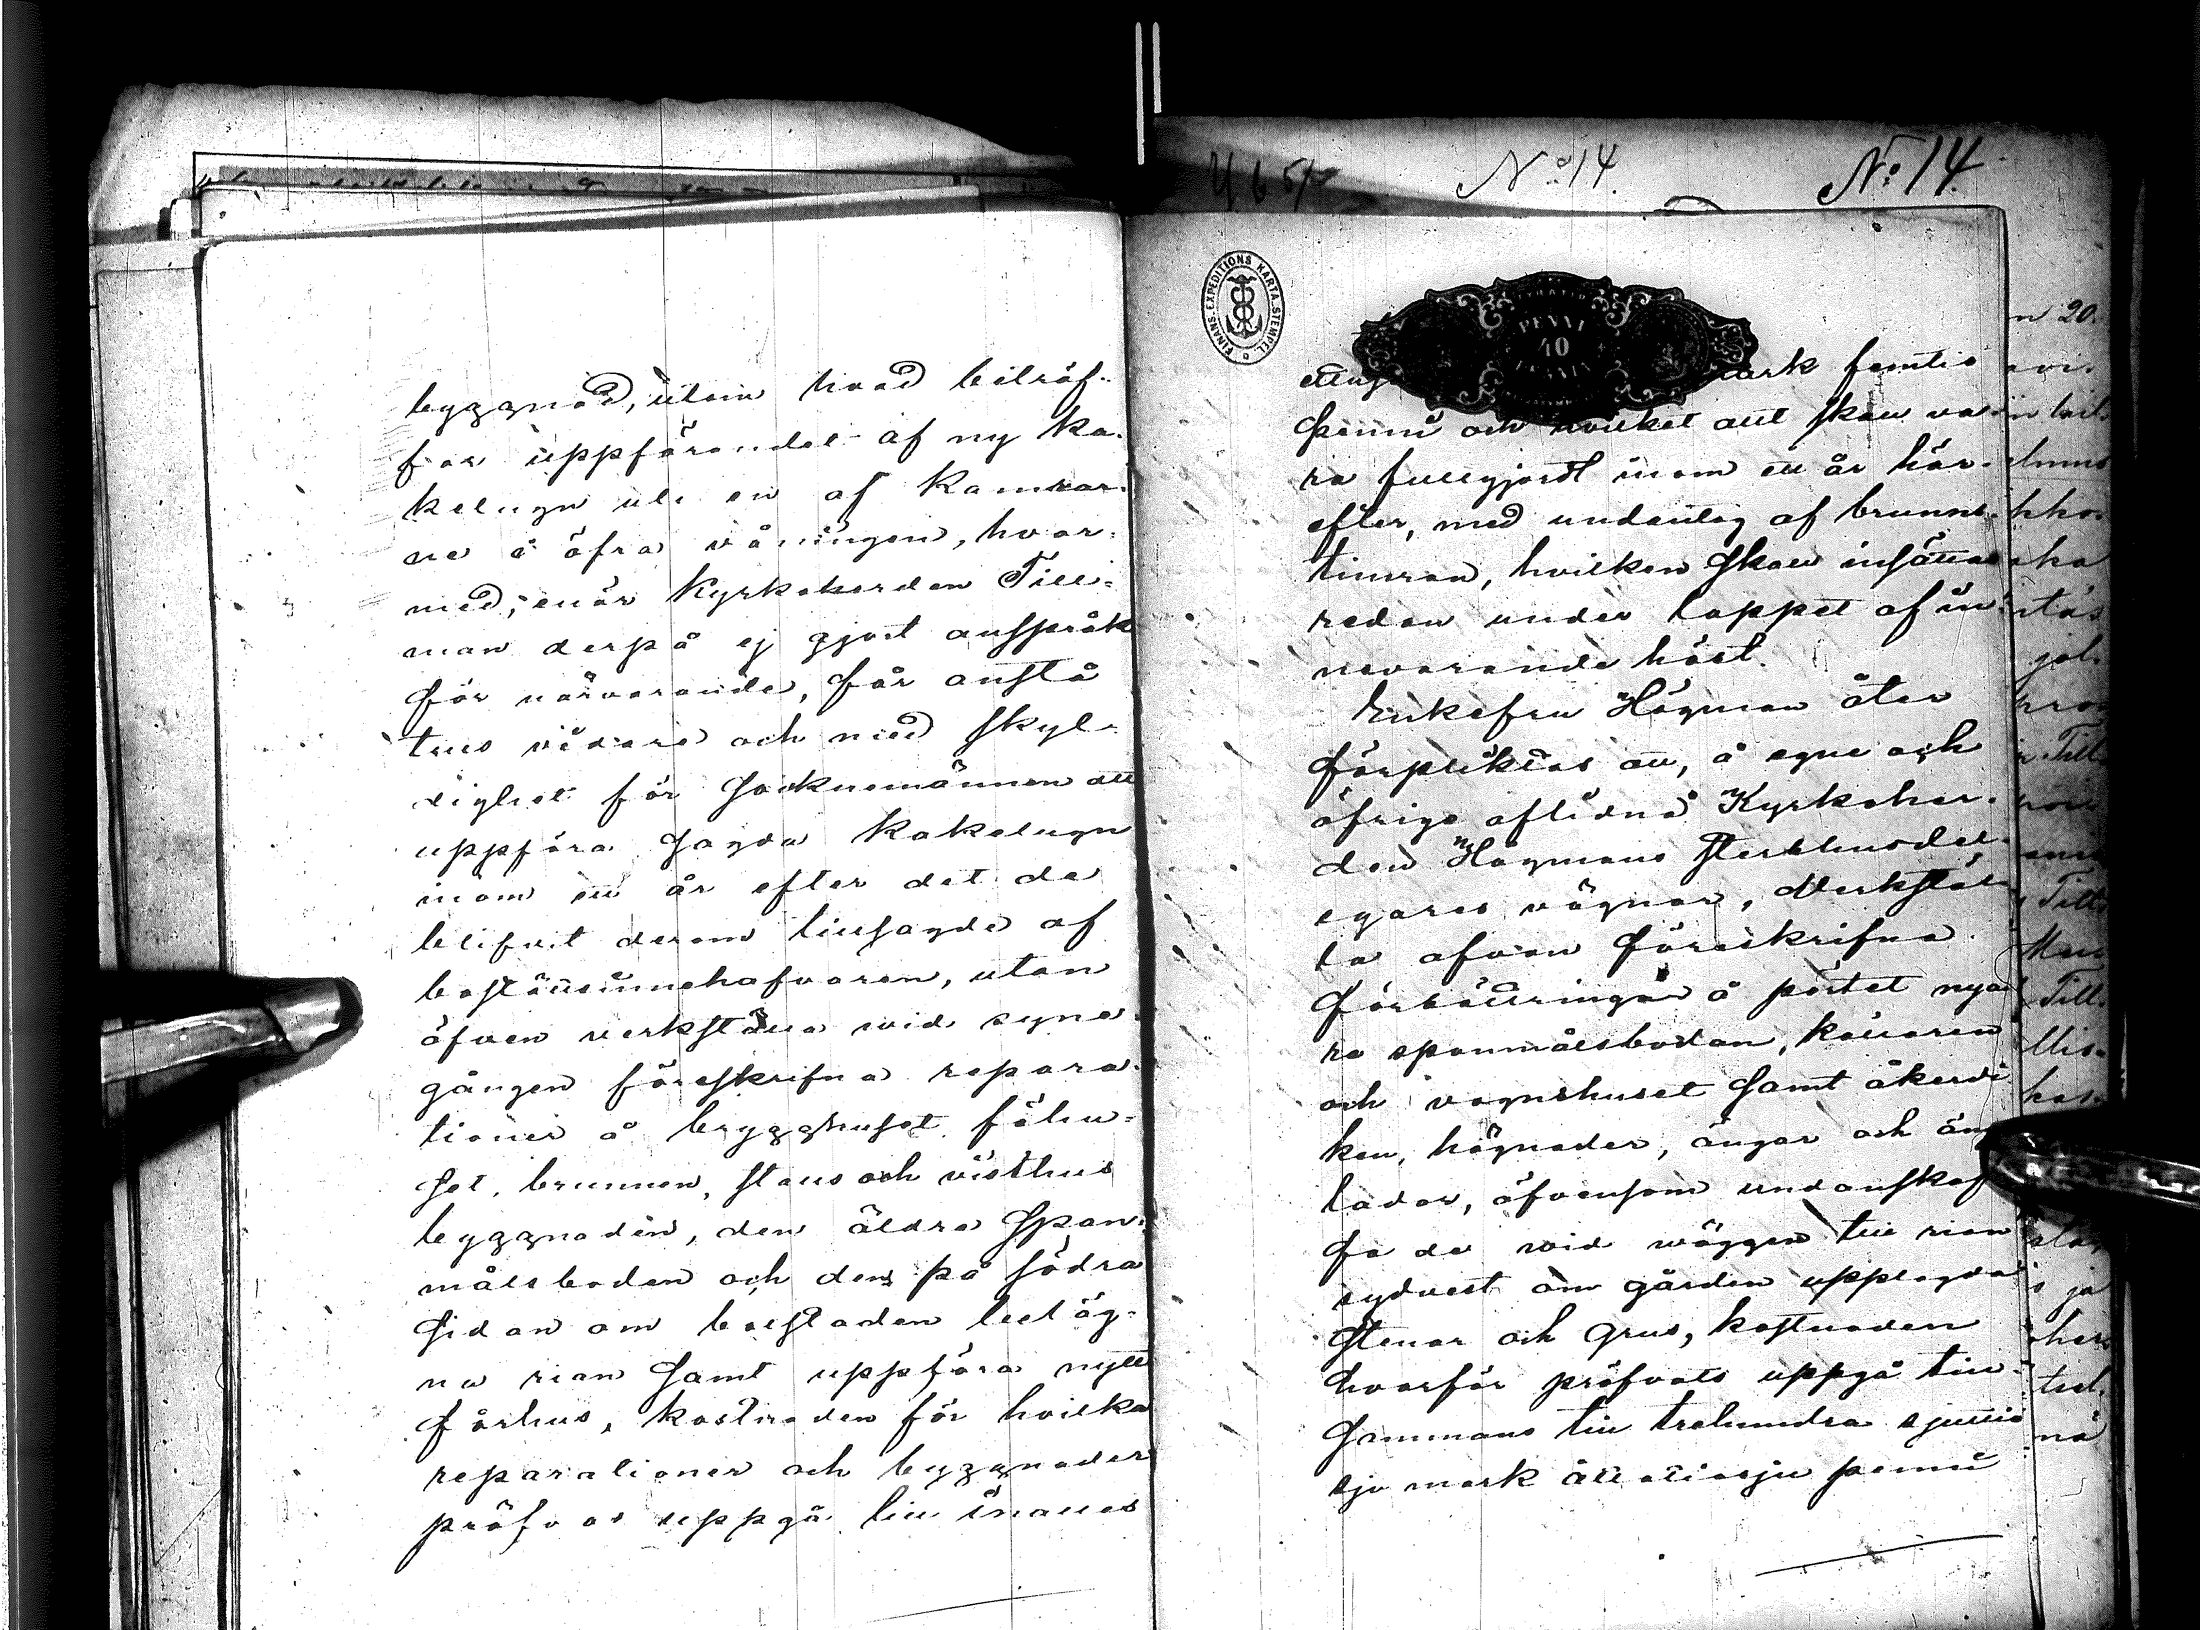 byggnad, utom hvad beträf-
far uppförandet af ny ka-
kelugn uti en af kamrar-
ne i öfra våningen, hvar-
med, enär Kyrkoherden Till-
man derpå ej gjort anspråk
för närvarande, får anstå
tills vidare och med skyl-
dighet för Socknemännen att
uppföra sagda kakelugn
inom ett år efter det de
blifvit derom tillsagde af
boställsinnehafvaren, utan
äfven verkställa vid syne-
gången föreskrifna repara-
tioner å brygghuset, fähu-
set, brunnen, stall och visthus
byggnaden, den äldre span-
målsboden och den på södra
sidan om bostaden beläg-
na rian samt uppföra nytt
fårhus, kostnaden för hvilka
reparationer och byggnader
pröfvas uppgå till inalles
No 14.
No 14.
FINANS-EXPEDITIONS KARTA-STEMPEL
PENNI
40
mark femtio
penni och hvilket allt skall va-
ra fullgjordt inom ett år här-
efter, med undantag af brunns-
timran, hvilken skall insättas
redan under loppet af in-
nevarande höst.
Enkefru Högman åter
förpliktas att, å egne och
öfrige aflidne Kyrkoher-
den Högmans sterbhusdel-
egares vägnar, verkstäl-
la ofvan föreskrifna
förbättringar å pörtet nya-
re spanmålsbodan, källaren
och vagnshuset samt åkerdi
ken, hägnader, ängar och äng
lador, äfvensom undanskaf
fa de vid väggen till rian
sydvest om gården upplagda
stenar och grus, kostnaden
hvarför pröfvats uppgå till-
sammans till trehundra sjuttio
sju mark åttatiosju penni